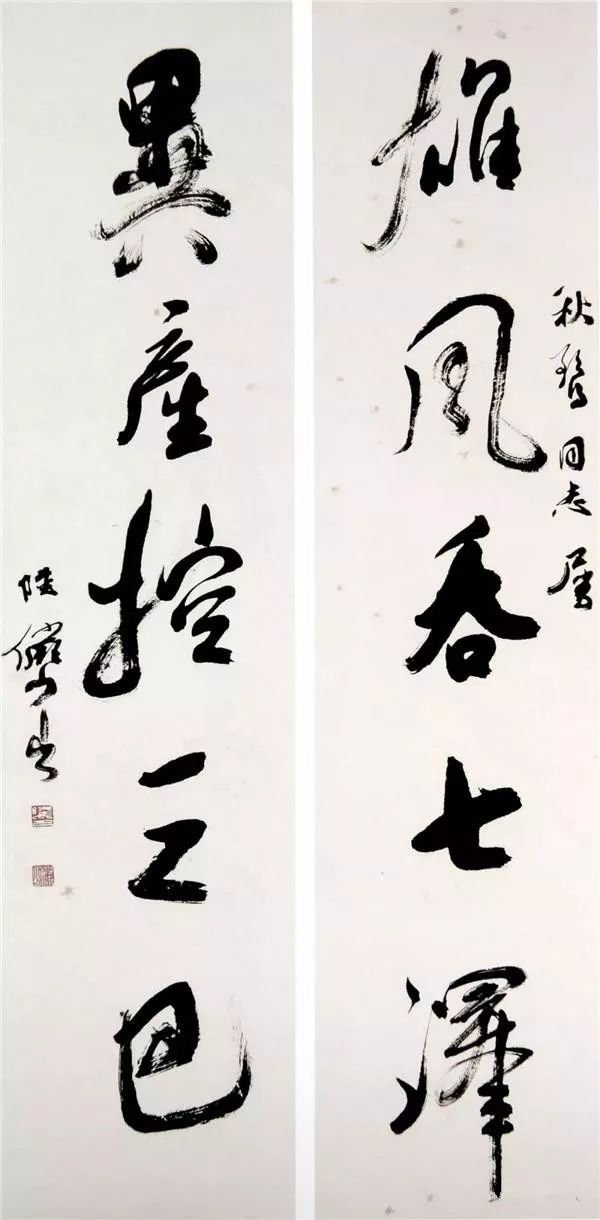 秋鶩同志屬
雄風吞七澤
異產控三巴
陸儼少書